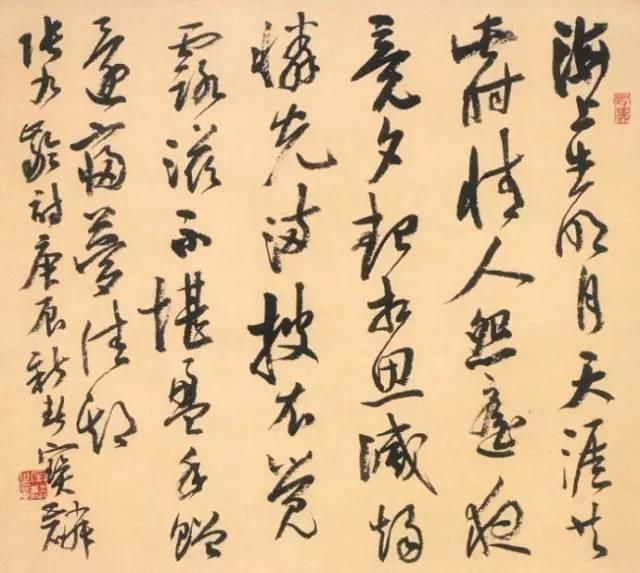 海上生明月天涯共
此时情人怨遥夜
竟夕起相思滅燭
憐光满披衣覺
露滋不堪盈手贈
還寢夢佳期
張九齡詩庚辰新寶麟